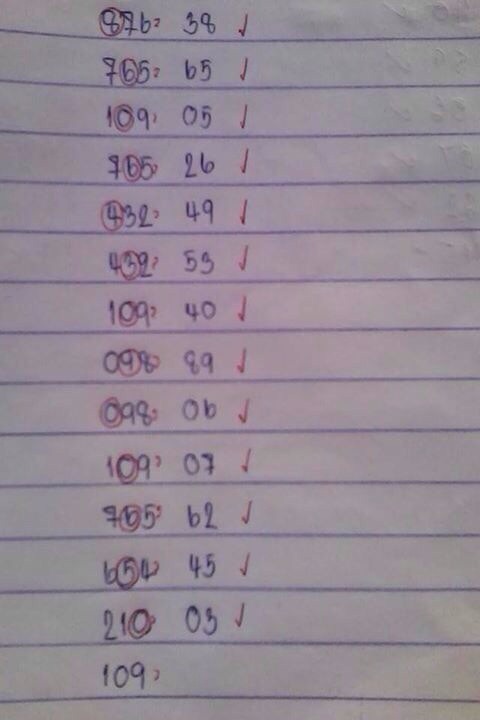 876: 38 ✓
765: 65 ✓
109: 05 ✓
765: 26 ✓
432: 49 ✓
432: 53 ✓
109: 40 ✓
098: 89 ✓
098: 06 ✓
109: 07 ✓
765: 62 ✓
654: 45 ✓
210: 03 ✓
109: